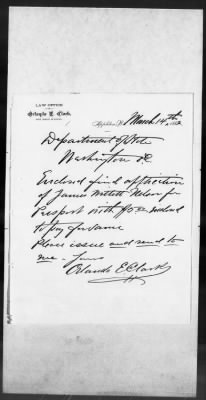 LAW OFFICE
Orlando E. Clark,
Appleton, March 14th
Department of State
Washington DC
Enclosed find application
of James Willett Nelson for
Passport with $5.00 enclosed
to pay for same
Please issue and send to
me - Yours
Orlando E Clark